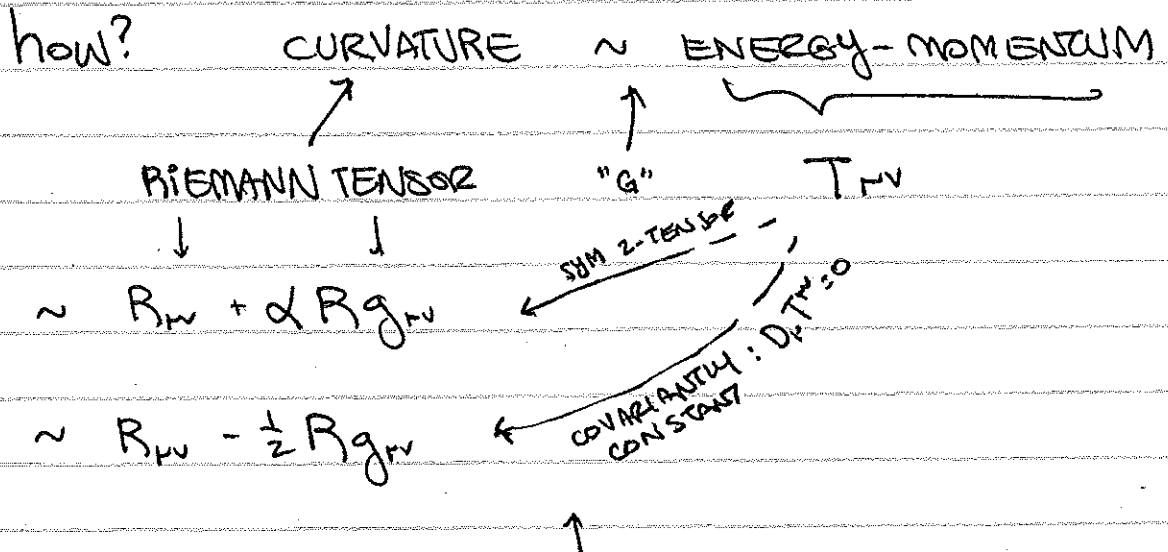 how? CURVATURE ~ ENERGY-MOMENTUM
RIEMANN TENSOR "G" Tμν
SYM 2-TENSOR
~ Rμν + α R gμν
COVARIANTLY : DμTμν=0
CONSTANT
~ Rμν - ½ R gμν